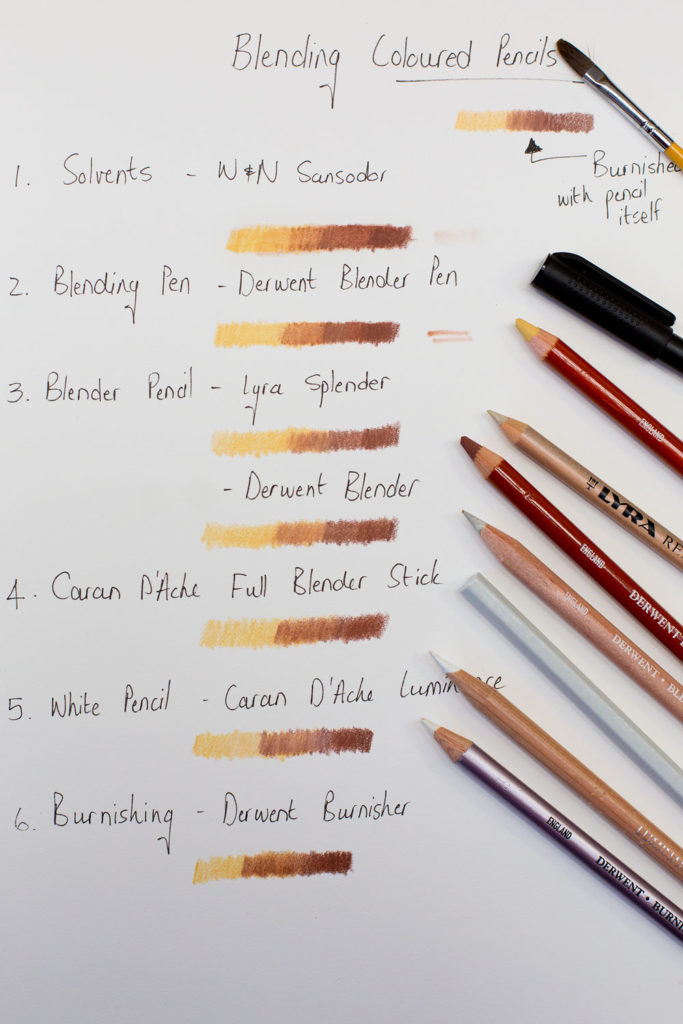 Blending Coloured Pencils
Burnished
with pencil
itself
1. Solvents - W&N Sansodor
2. Blending Pen - Derwent Blender Pen
3. Blender Pencil - Lyra Splender
- Derwent Blender
4. Caran D'Ache Full Blender Stick
5. White Pencil - Caran D'Ache Luminance
6. Burnishing - Derwent Burnisher
ENGLAND
LYRA RE
ENGLAND DERWENT
ENGLAND DERWENT • BLE
ENGLAND DERWENT • BURNI